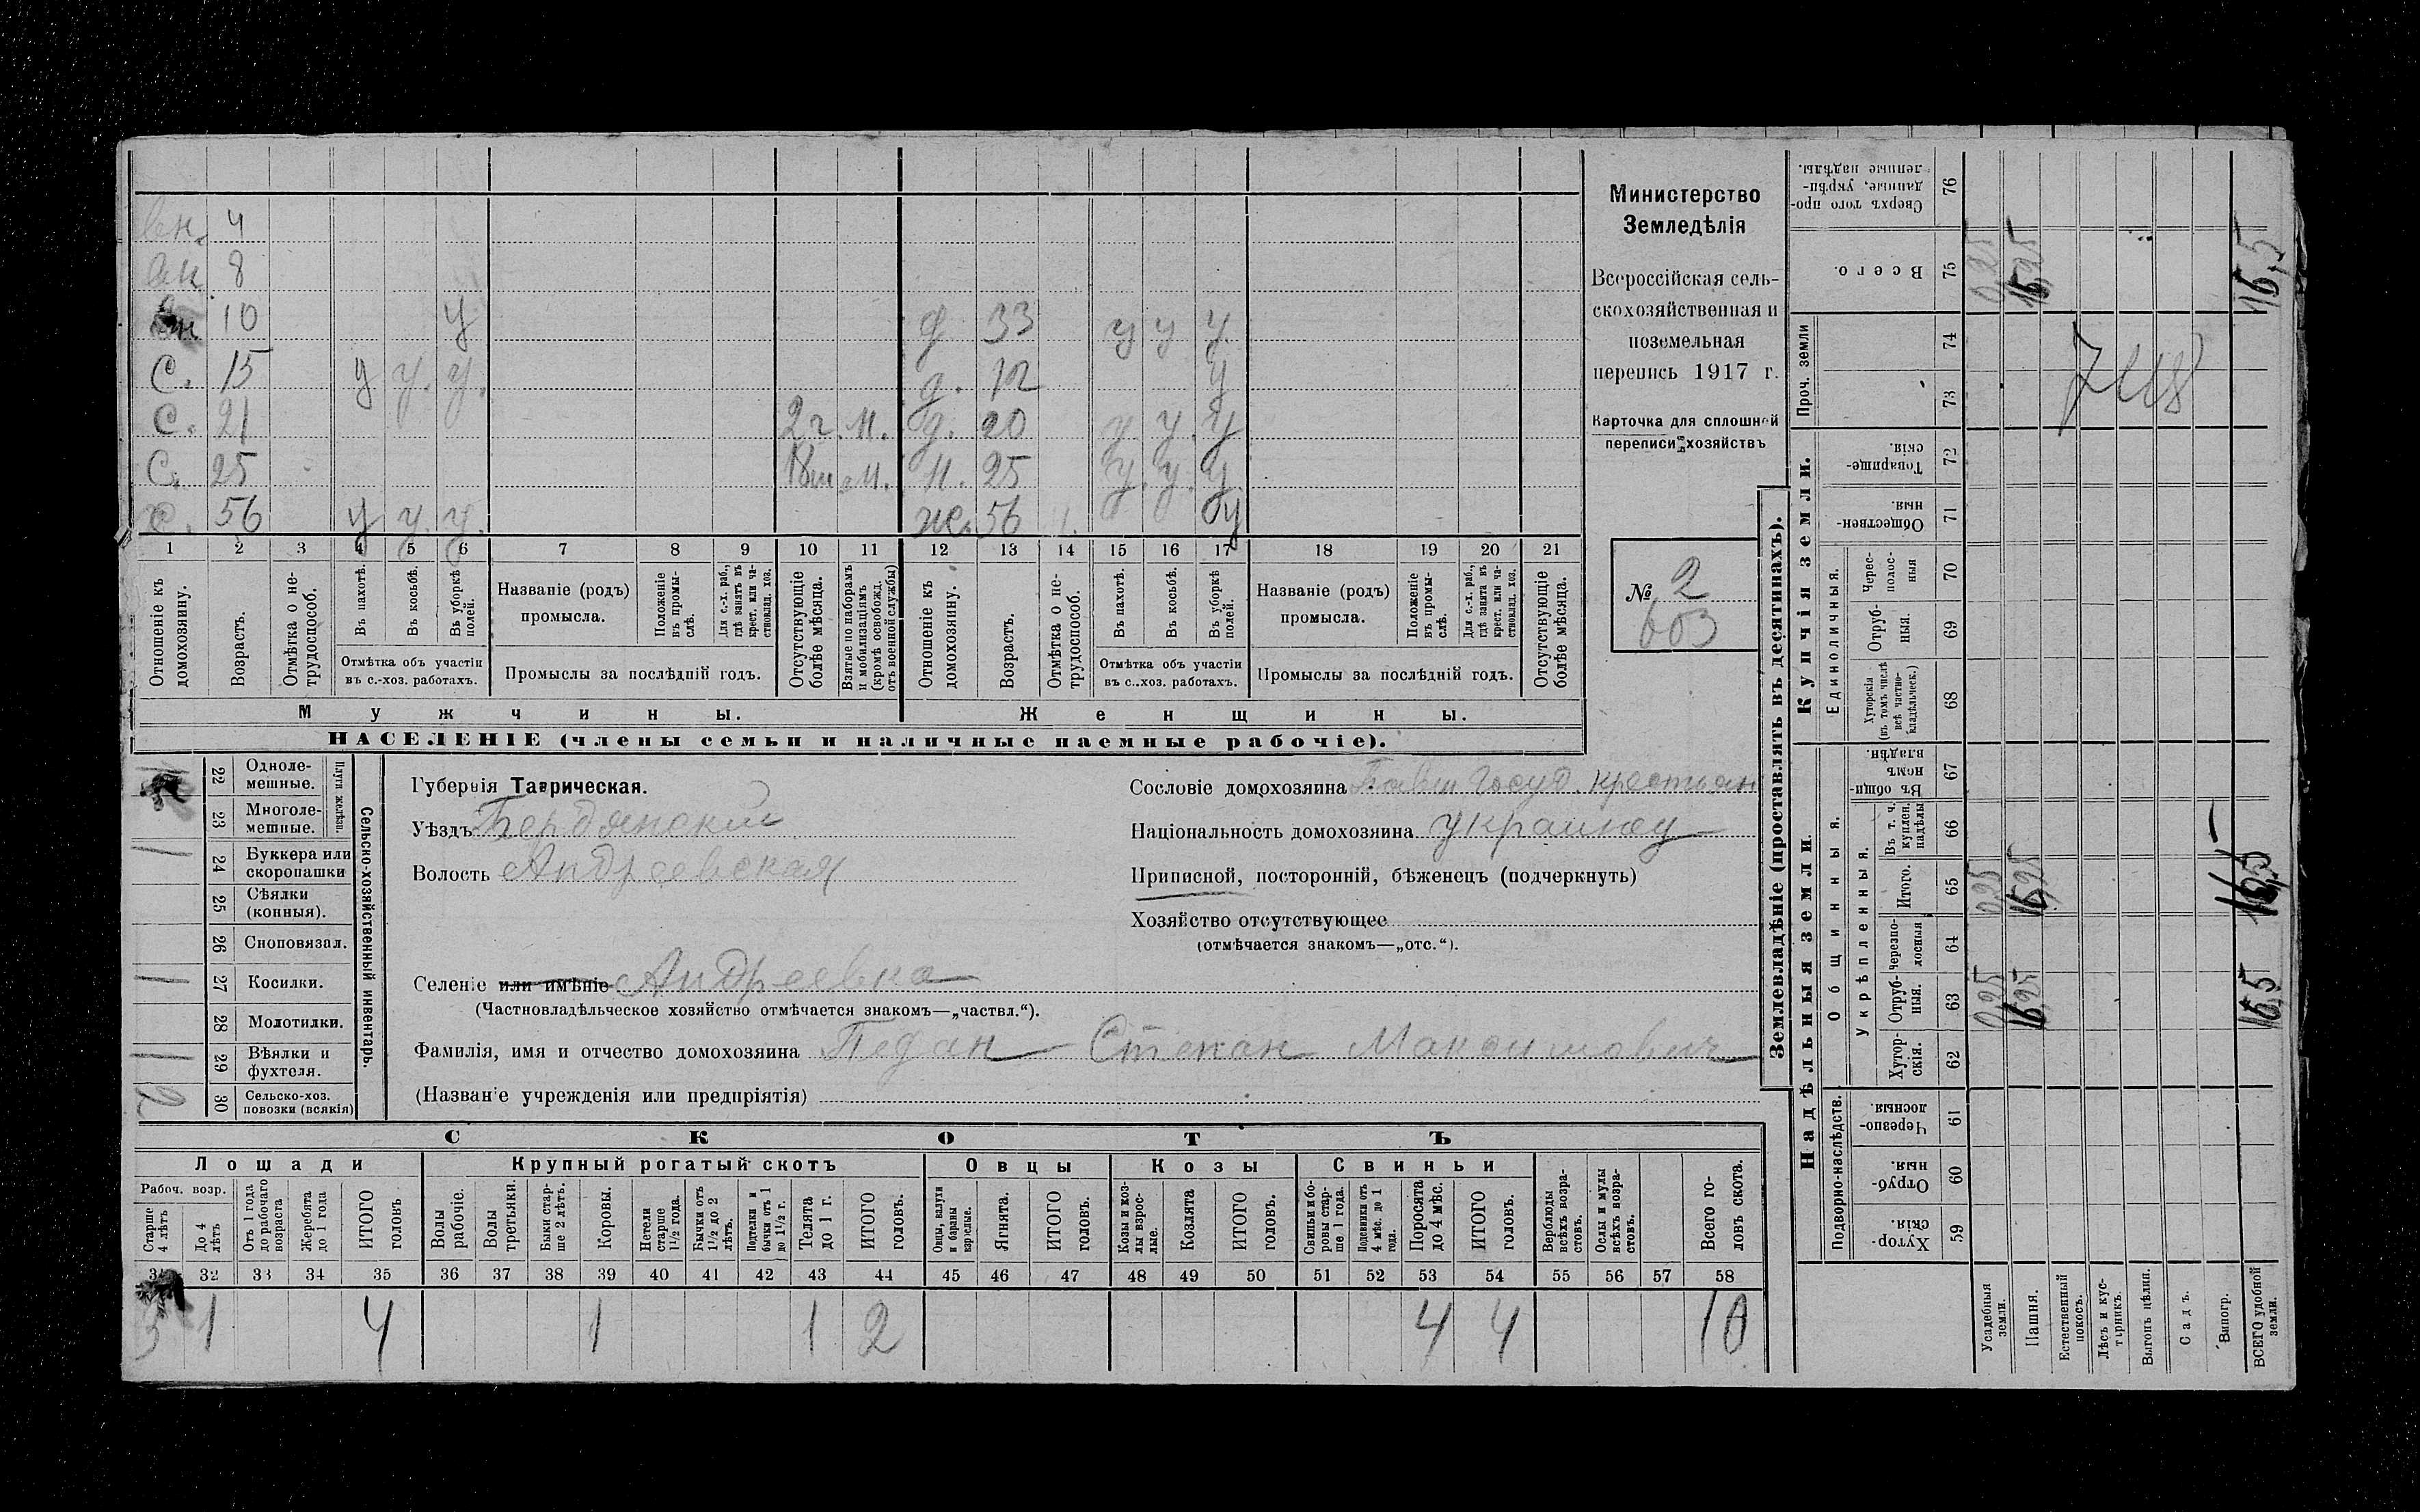 вн. 4
вн 8
вн 10 у д 33 у у у
С. 15 у у. у. д. 12 у
С. 21 2 г. м. д. 20 у. у. у
С. 25 м. н. 25 у. у. у.
х. 56 у у. у. ж. 56 у
1 2 3 4 5 6 7 8 9 10 11 12 13 14 15 16 17 18 19 20 21
Отношеніе къ домохозяину.
Возрастъ.
Отмѣтка о нетрудоспособ.
Въ пахотѣ.
Въ косьбѣ.
Въ уборкѣ полей.
Отмѣтка объ участіи
въ с.-хоз. работахъ.
Названіе (родъ)
промысла.
Положеніе въ промыслѣ.
Для с.-х. раб., гдѣ занятъ въ крест. или частновлад. хоз.
Промыслы за послѣдній годъ.
Отсутствующіе болѣе мѣсяца.
Взятые по наборамъ и мобилизаціямъ (кромѣ освобожд. отъ военной службы)
Отношеніе къ домохозяину.
Возрастъ.
Отмѣтка о нетрудоспособ.
Въ пахотѣ.
Въ косьбѣ.
Въ уборкѣ полей.
Отмѣтка объ участіи
въ с.-хоз. работахъ.
Названіе (родъ)
промысла.
Положеніе въ промыслѣ.
Для с.-х. раб., гдѣ занята въ крест. или частновлад. хоз.
Промыслы за послѣдній годъ.
Отсутствующіе болѣе мѣсяца.
Мужчины. Женщины.
НАСЕЛЕНІЕ (члены семьи и наличные наемные рабочіе).
Министерство
Земледѣлія
Всероссійская сель-
скохозяйственная и
поземельная
перепись 1917 г.
Карточка для сплошной
переписи хозяйствъ
№ 2
603
Сельско-хозяйственный инвентарь.
Плуги желѣзн.
22 Одноле-
мешные.
23 Многоле-
мешные.
1 24 Буккера или
скоропашки
25 Сѣялки
(конныя).
26 Сноповязал.
1 27 Косилки.
28 Молотилки.
1 29 Вѣялки и
фухтеля.
2 30 Сельско-хоз.
повозки (всякія)
Губернія Таврическая.
Уѣздъ Бердянский
Волость Андреевская
Селеніе или имѣніе Андреевка
(Частновладѣльческое хозяйство отмѣчается знакомъ—„частвл.“).
Фамилія, имя и отчество домохозяина Педан Степан Максимович
(Названіе учрежденія или предпріятія)
Сословіе домохозяина Бывш Госуд. крестьян
Національность домохозяина украинец
Приписной, посторонній, бѣженецъ (подчеркнуть)
Хозяйство отсутствующее
(отмѣчается знакомъ—„отс.“).
СКОТЪ
Лошади Крупный рогатый скотъ Овцы Козы Свиньи
Рабоч. возр.
Старше 4 лѣтъ
До 4 лѣтъ
Отъ 1 года до рабочаго возраста
Жеребята до 1 года
ИТОГО головъ
Волы рабочіе.
Волы третьяки.
Быки старше 2 лѣтъ.
Коровы.
Нетели старше 1½ года.
Бычки отъ 1½ до 2 лѣтъ.
Подтелки и бычки отъ 1 до 1½ г.
Телята до 1 г.
ИТОГО головъ.
Овцы, валухи и бараны взрослые.
Ягнята.
ИТОГО головъ.
Козы и козлы взрослые.
Козлята
ИТОГО головъ.
Свиньи и боровы старше 1 года.
Подсвинки отъ 4 мѣс. до 1 года.
Поросята до 4 мѣс.
ИТОГО головъ.
Верблюды всѣхъ возрастовъ.
Ослы и мулы всѣхъ возрастовъ.
Всего головъ скота.
31 32 33 34 35 36 37 38 39 40 41 42 43 44 45 46 47 48 49 50 51 52 53 54 55 56 57 58
3 1 4 1 1 2 4 4 10
Землевладѣніе (проставлять въ десятинахъ).
Надѣльныя земли. Купчія земли.
Подворно-наслѣдств.
Общинныя.
Укрѣпленныя.
Единоличныя.
Проч. земли
Хуторскія. 59
Отрубныя. 60
Черезполосныя. 61
Хуторскія. 62
Отрубныя. 63
Черезполосныя 64
Итого. 65
Въ т. ч. куплен. надѣлы 66
Въ общинномъ владѣн. 67
Хуторскія (въ томъ числѣ всѣ частновладѣльческ.) 68
Отрубныя. 69
Череcполосныя 70
Общественныя. 71
Товарищескія. 72
73
74
Всего. 75
Сверхъ того проданные, укрѣпленные надѣлы. 76
Усадебныя земли. 0,25 0,25 0,25
Пашня. 16,25 16,25 16,25
Естественный покосъ.
Лѣсъ и кустарникъ.
Выгонъ цѣлин.
Садъ.
Виногр.
ВСЕГО удобной земли. 16,5 16,5 16,5